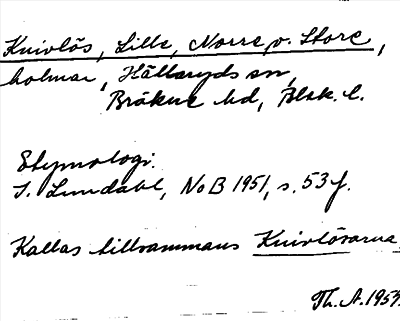 Knivlös, Lille, Norre o. Store,
holmar, Hällaryds sn,
Bräkne hd, Blek. l.
Etymologi:
I. Lundahl, NoB 1951, s. 53 f.
Kallas tillsammans Knivlösarna
Th. A. 1957.